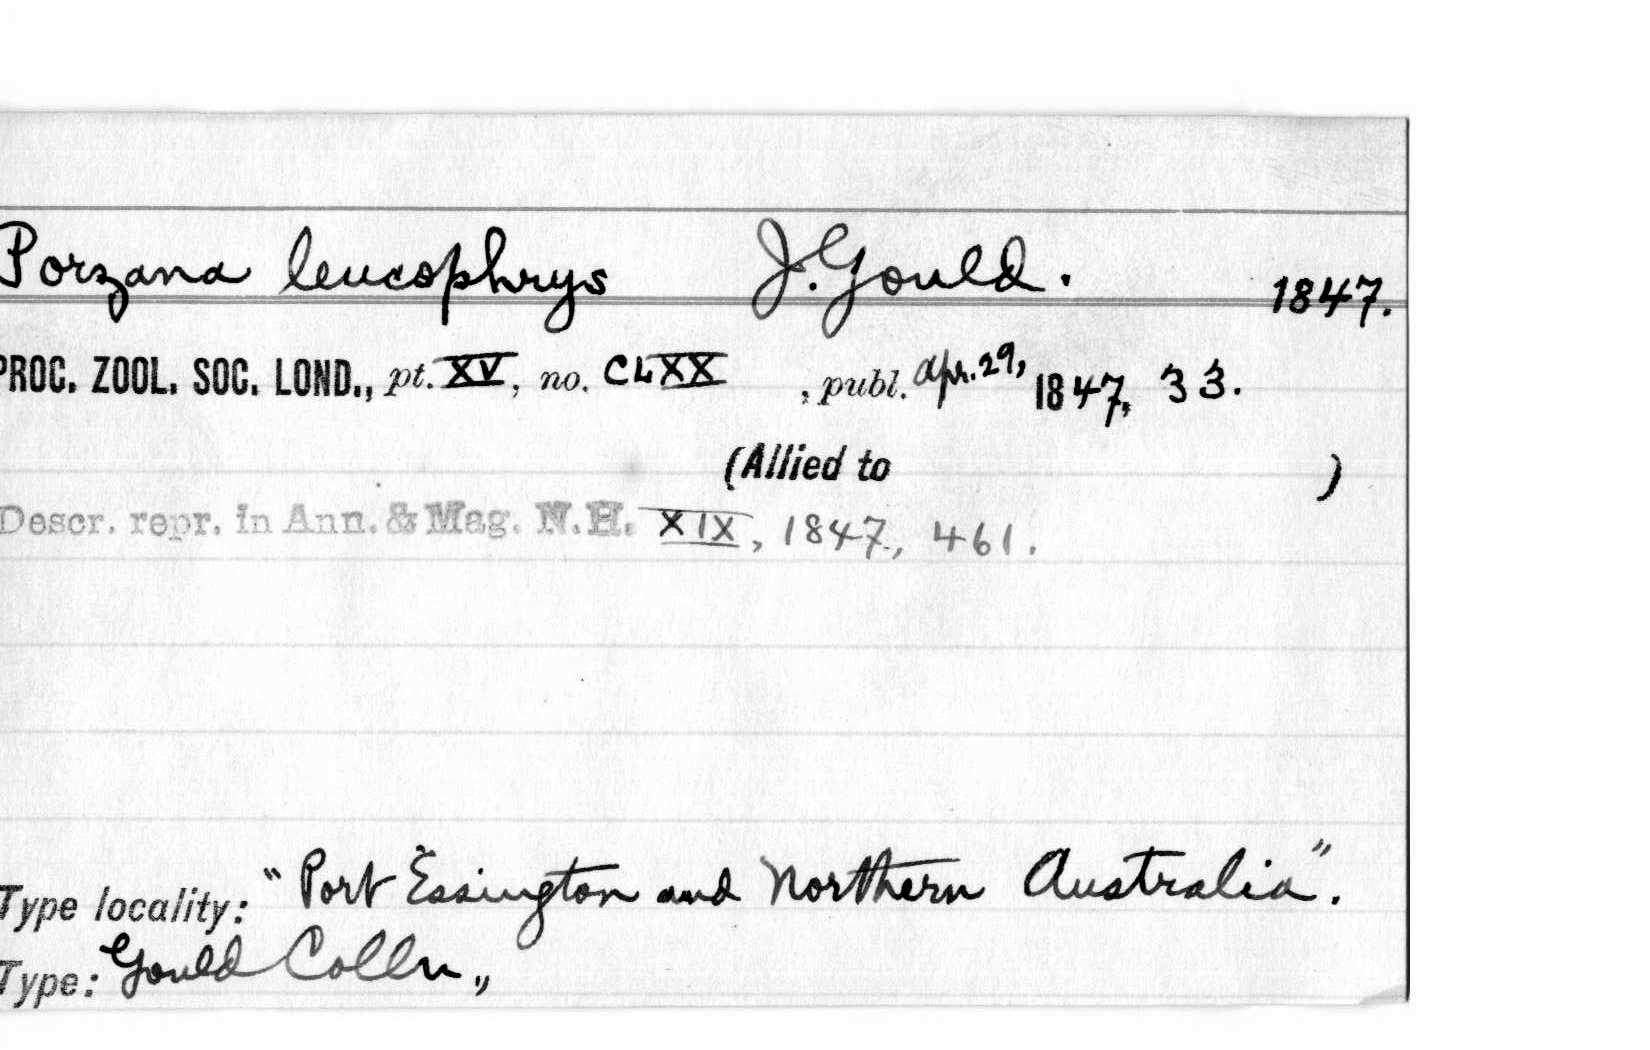 Porzana leucophrys J. Gould. 1847.
PROC. ZOOL. SOC. LOND., pt. XV, no. CLXX , publ. Apr. 29, 1847, 33.
(Allied to )
Descr. repr. in Ann. & Mag. N.H. XIX, 1847, 461.
Type locality: "Port Essington and Northern Australia".
Type: Gould Colln.,